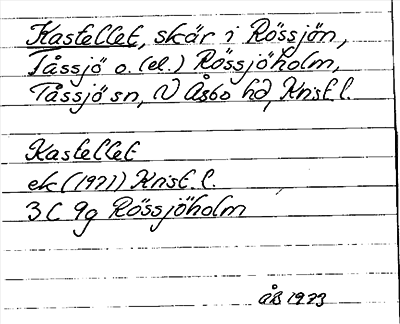 Kastellet, skär i Rössjön,
Tåssjö o. (el.) Rössjöholm,
Tåssjö sn, N Åsbo hd, Krist. l.
Kastellet
ek (1971) Krist. l.
3C 9g Rössjöholm
åB 1973